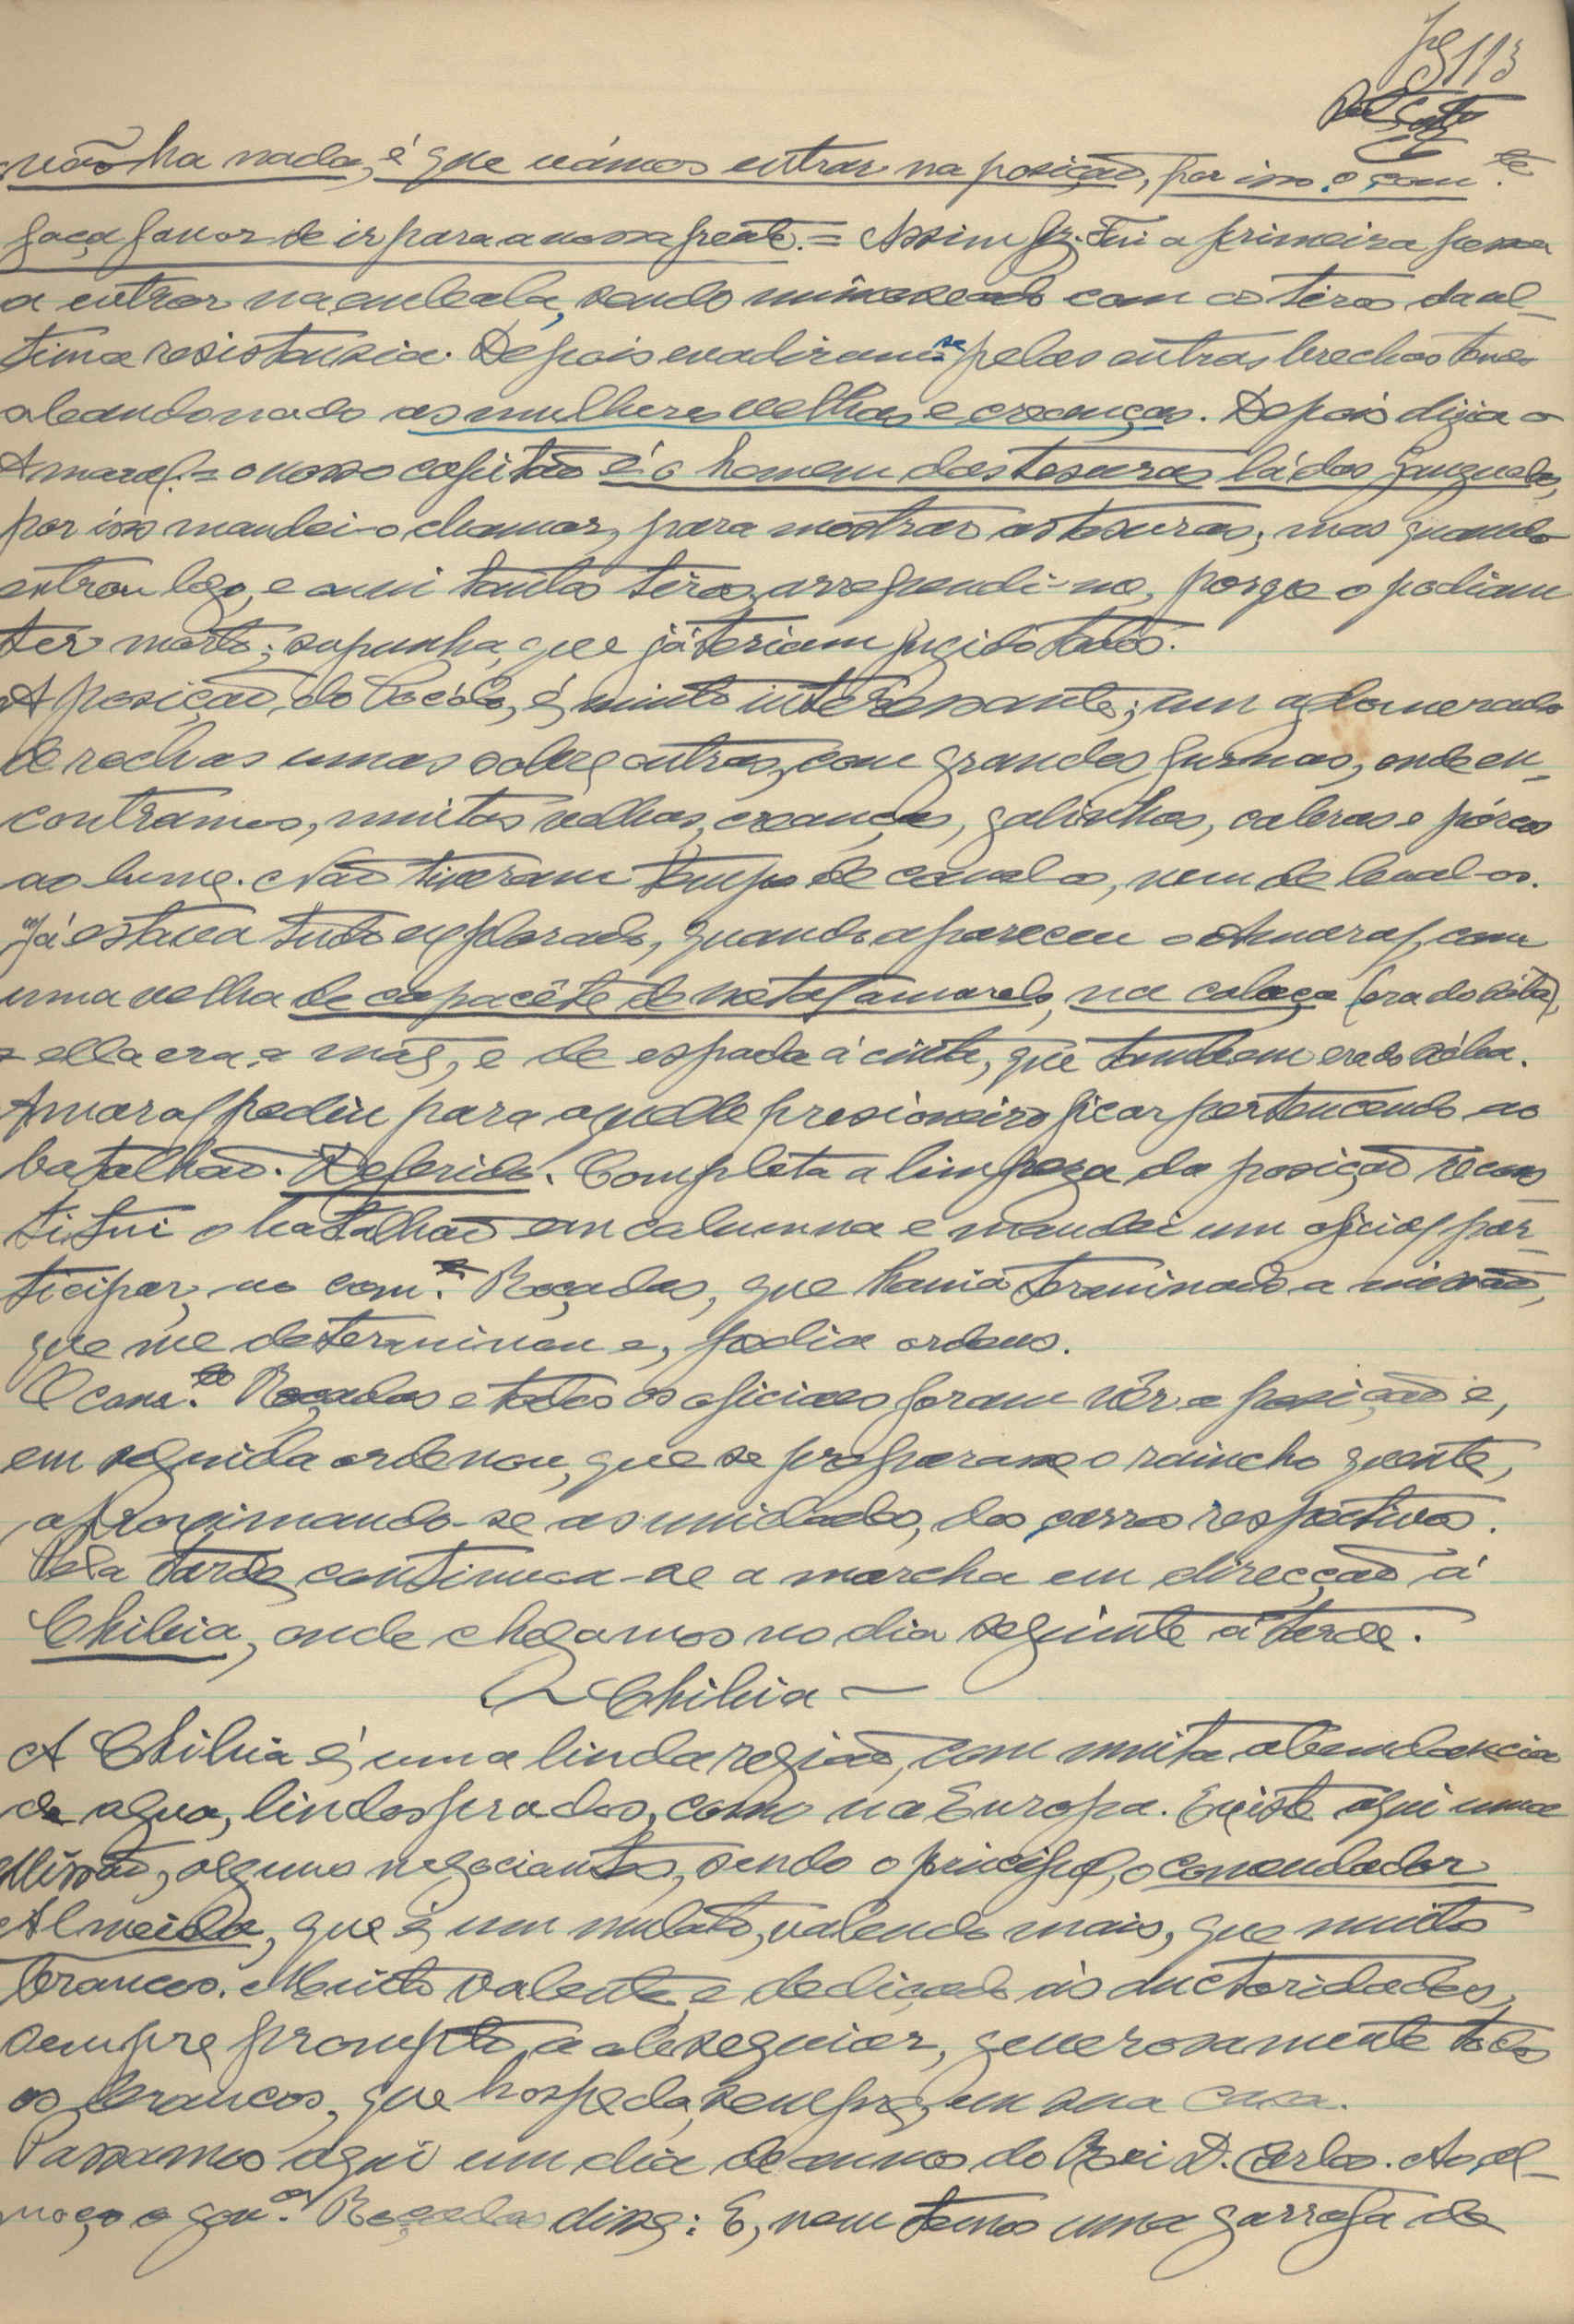 fg 113
não ha nada, é que vámos entrar na posição, por isso o com.te
faça favor de ir para a nossa frente. = Assim fiz. Fui a primeira pessoa
a entrar na embala, sendo com os tiros da ul-
tima resistensia. Depois evadiram-se pelas outras brechas tendo
abandonado as mulheres velhas e creanças. Depois dizia o
Amaral: = o nosso capitão é o homem das tesuras lá dos ganguelas,
por isso mandei-o chamar, para mostrar as tesuras; mas quando
entrou logo, e ouvi tantos tiros, arrependi-me, porqe o podiam
ter morto; supunha, que já teriam fugido todos.
A posição do é muito interessante; um aglomerado
de rochas umas sobre outras, com grandes furnas, onde en-
contramos, muitas velhas, creanças, galinhas, cabras e pórcos
ao lume. Não tiveram tempo de comel-os, nem de leval-os.
Já estava tudo explorado, quando apareceu o Amaral, com
uma velha de capacête de metal amarelo, na cabeça (era do sóba),
ella era a mãe, e de espada á cinta, que tambem era do sóba.
Amaral pediu para aquelle presioneiro ficar pertencendo ao
batalhão. Deferido. Completa a limpeza da posição recons-
titui o batalhão em columna e mandei um oficial par-
ticipar, ao com.te Roçadas, que havia terminado a missão,
que me determinou e, pedia ordens.
O com.te Roçadas e todos os oficiaes foram vêr a posição e,
em seguida ordenou, que se preparasse o rancho quente,
aproximando-se as unidades, dos carros respectivos.
Pela tarde, continuou-se a marcha em direcção á
Chibia, onde chegamos no dia seguinte á tarde.
Chibia —
A Chibia é uma linda região, com muita abundancia
de agua, lindos prados, como na Europa. Existe aqui uma
Missão, alguns negociantes, sendo o principal, o comendador
Almeida, que é um mulato, valendo mais, que muitos
brancos. Muito valente e dedicado ás auctoridades,
sempre prompto a obsequiar, generosamente todos
os brancos, que hospeda, sempre, em sua casa.
Passamos aqui um dia de annos do Rei D. Carlos. Ao al-
moço o gov.or Roçadas disse: E, nem temos uma garrafa de